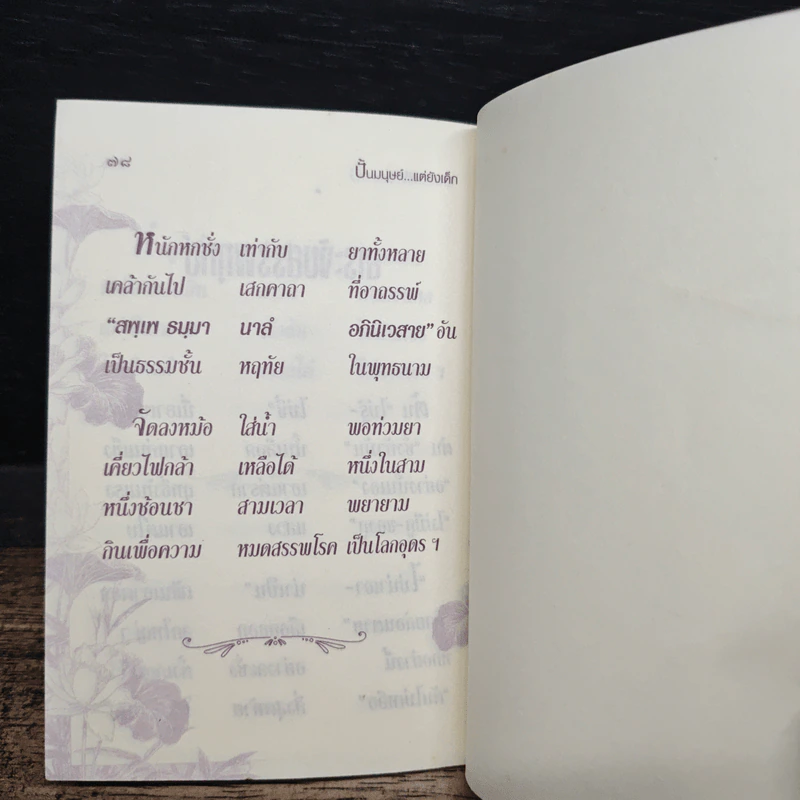 ๗๘
ปั้นมนุษย์...แต่ยังเด็ก
หนักหกชั่ง เท่ากับ ยาทั้งหลาย
เคล้ากันไป เสกคาถา ที่อาถรรพ์
“สพฺเพ ธมฺมา นาลํ อภินิเวสาย” อัน
เป็นธรรมชั้น หฤทัย ในพุทธนาม
จัดลงหม้อ ใส่น้ำ พอท่วมยา
เคี่ยวไฟกล้า เหลือได้ หนึ่งในสาม
หนึ่งช้อนชา สามเวลา พยายาม
กินเพื่อความ หมดสรรพโรค เป็นโลกอุดร ฯ